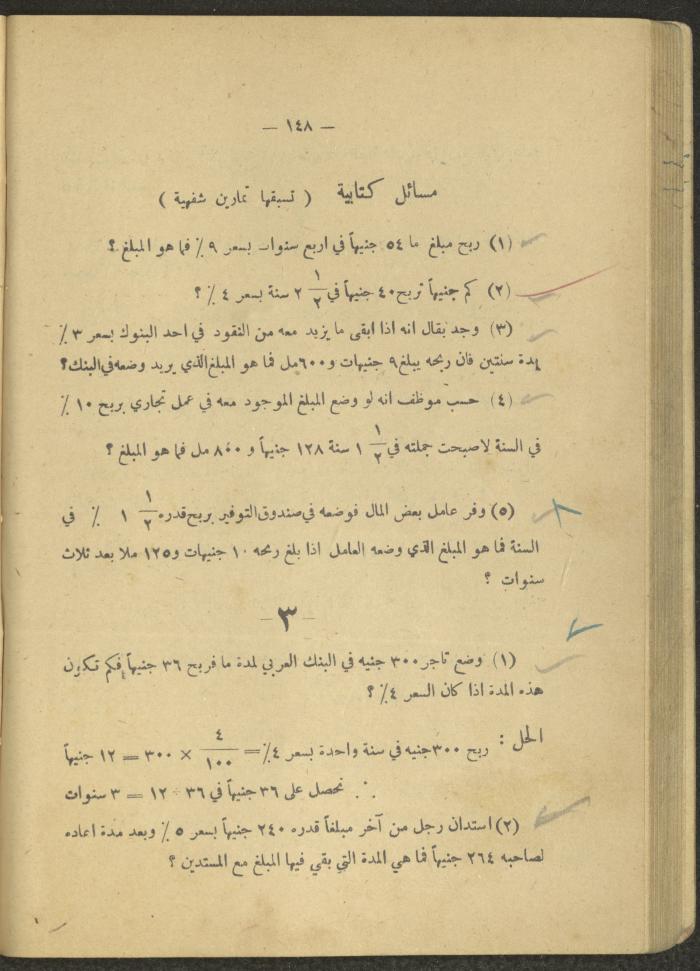 — ١٤٨ —
مسائل كتابية ( تسبقها تمارين شفهية )
(١) ربح مبلغ ما ٥٤ جنيهاً في اربع سنوات بسعر ٩ ٪ فما هو المبلغ ؟
(٢) كم جنيهاً تربح ٤٠ جنيهاً في ١/٢ ٢ سنة بسعر ٤ ٪ ؟
(٣) وجد بقال انه اذا ابقى ما يزيد معه من النقود في احد البنوك بسعر ٣ ٪
لمدة سنتين فان ربحه يبلغ ٩ جنيهات و ٦٠٠ مل فما هو المبلغ الذي يريد وضعه في البنك ؟
(٤) حسب موظف انه لو وضع المبلغ الموجود معه في عمل تجاري بربح ١٠ ٪
في السنة لاصبحت جملته في ١/٢ ١ سنة ١٢٨ جنيهاً و ٨٠٠ مل فما هو المبلغ ؟
(٥) وفر عامل بعض المال فوضعه في صندوق التوفير بربح قدره ١/٢ ١ ٪ في
السنة فما هو المبلغ الذي وضعه العامل اذا بلغ ربحه ١٠ جنيهات و ١٢٥ ملا بعد ثلاث
سنوات ؟
— ٣ —
(١) وضع تاجر ٣٠٠ جنيه في البنك العربي لمدة ما فربح ٣٦ جنيهاً فكم تكون
هذه المدة اذا كان السعر ٤ ٪ ؟
الحل : ربح ٣٠٠ جنيه في سنة واحدة بسعر ٤ ٪ = ٤/١٠٠ × ٣٠٠ = ١٢ جنيهاً
∴ نحصل على ٣٦ جنيهاً في ٣٦ ÷ ١٢ = ٣ سنوات
(٢) استدان رجل من آخر مبلغاً قدره ٢٤٠ جنيهاً بسعر ٥ ٪ وبعد مدة اعاده
لصاحبه ٢٦٤ جنيهاً فما هي المدة التي بقي فيها المبلغ مع المستدين ؟